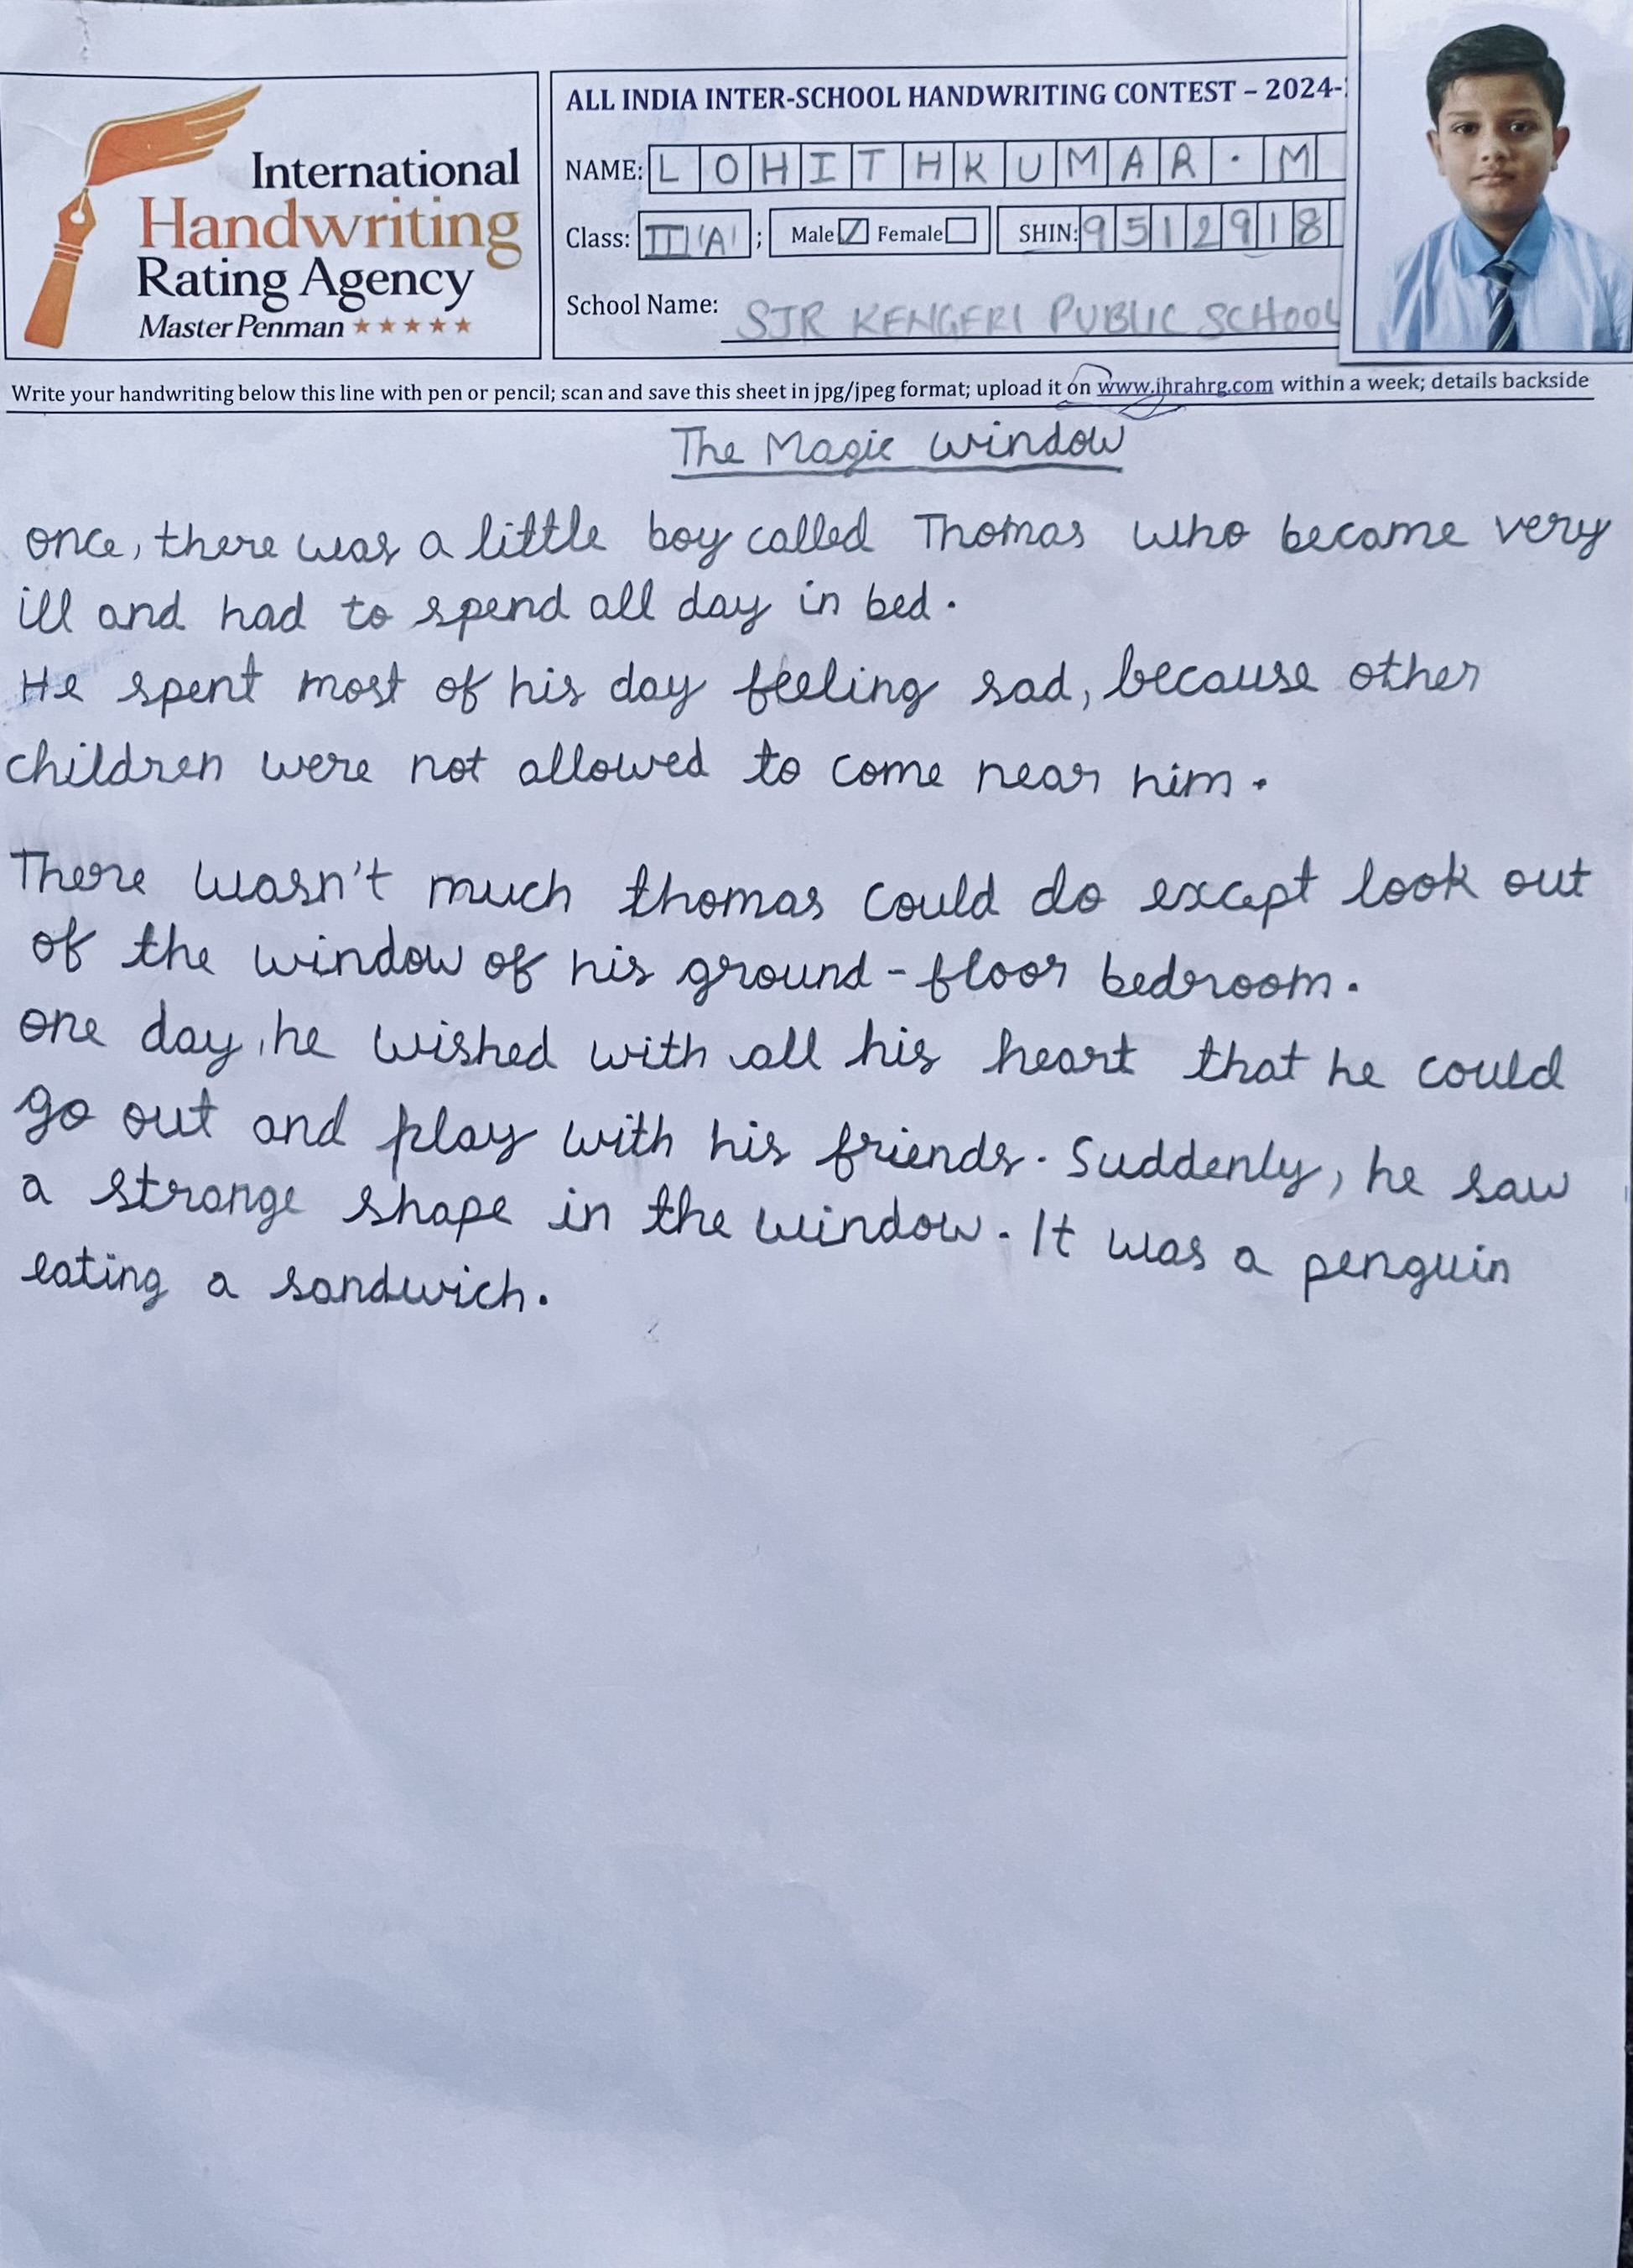 International
Handwriting
Rating Agency
Master Penman
ALL INDIA INTER-SCHOOL HANDWRITING CONTEST – 2024-
NAME: LOHITHKUMAR·M
Class: III 'A' ; Male Female SHIN: 9512918
School Name: SJR KENGERI PUBLIC SCHOOL
Write your handwriting below this line with pen or pencil; scan and save this sheet in jpg/jpeg format; upload it on www.ihrahrg.com within a week; details backside
The Magic window
once, there was a little boy called Thomas who became very
ill and had to spend all day in bed.
He spent most of his day feeling sad, because other
children were not allowed to come near him.
There wasn't much thomas could do except look out
of the window of his ground-floor bedroom.
one day, he wished with all his heart that he could
go out and play with his friends. Suddenly, he saw
a strange shape in the window. It was a penguin
eating a sandwich.